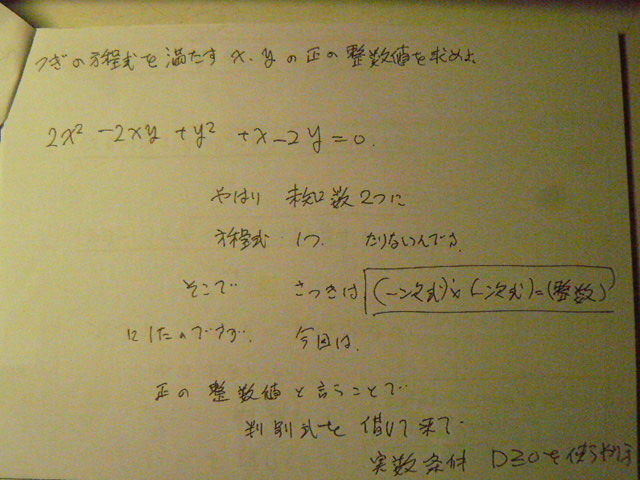 つぎの方程式を満たす x、yの正の整数値を求めよ
2x² -2xy +y² +x-2y=0.
やはり 未知数2つに
方程式 1つ. たりないんですが
そこで さっきは (一次式)×(一次式)=(整数)
にしたのですが. 今回は、
正の整数値と言うことで
判別式を借りて来て
実数条件 D≧0を使う